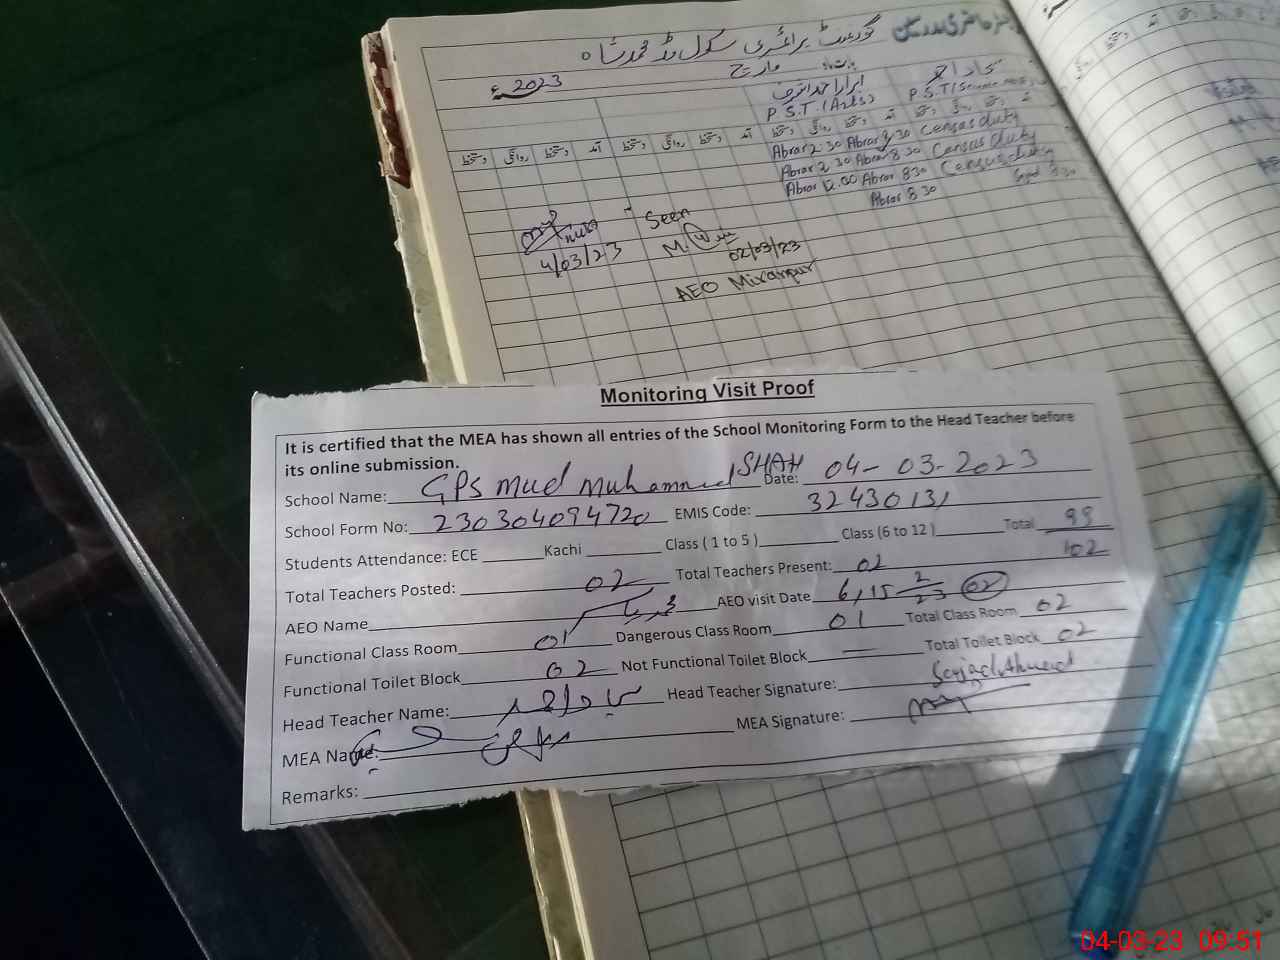 گورنمنٹ پرائمری سکول مڈ محمد شاہ
2023ء مارچ
P.S.T. (Arts) P.S.T (Science
Abrar 2 30 Abrar 8 30 Census duty
Abrar 2 30 Abrar 8 30 Census duty
Abrar 12.00 Abrar 8 30 Census duty
Abrar 8 30
Seen
4/03/23
M.
02/03/23
AEO Miranpur
Monitoring Visit Proof
It is certified that the MEA has shown all entries of the School Monitoring Form to the Head Teacher before
its online submission.
School Name: GPS mud muhammad SHAH Date: 04-03-2023
School Form No: 230304094720 EMIS Code: 32430131
Students Attendance: ECE Kachi Class ( 1 to 5 ) Class (6 to 12 ) Total 99
102
Total Teachers Posted: 02 Total Teachers Present: 02
AEO Name AEO visit Date 6,15 2/23 02
Functional Class Room 01 Dangerous Class Room 01 Total Class Room 02
Functional Toilet Block 02 Not Functional Toilet Block — Total Toilet Block 02
Head Teacher Name: سجاد احمد Head Teacher Signature: Sajjad Ahmed
MEA Name: MEA Signature:
Remarks:
04-03-23 09:51